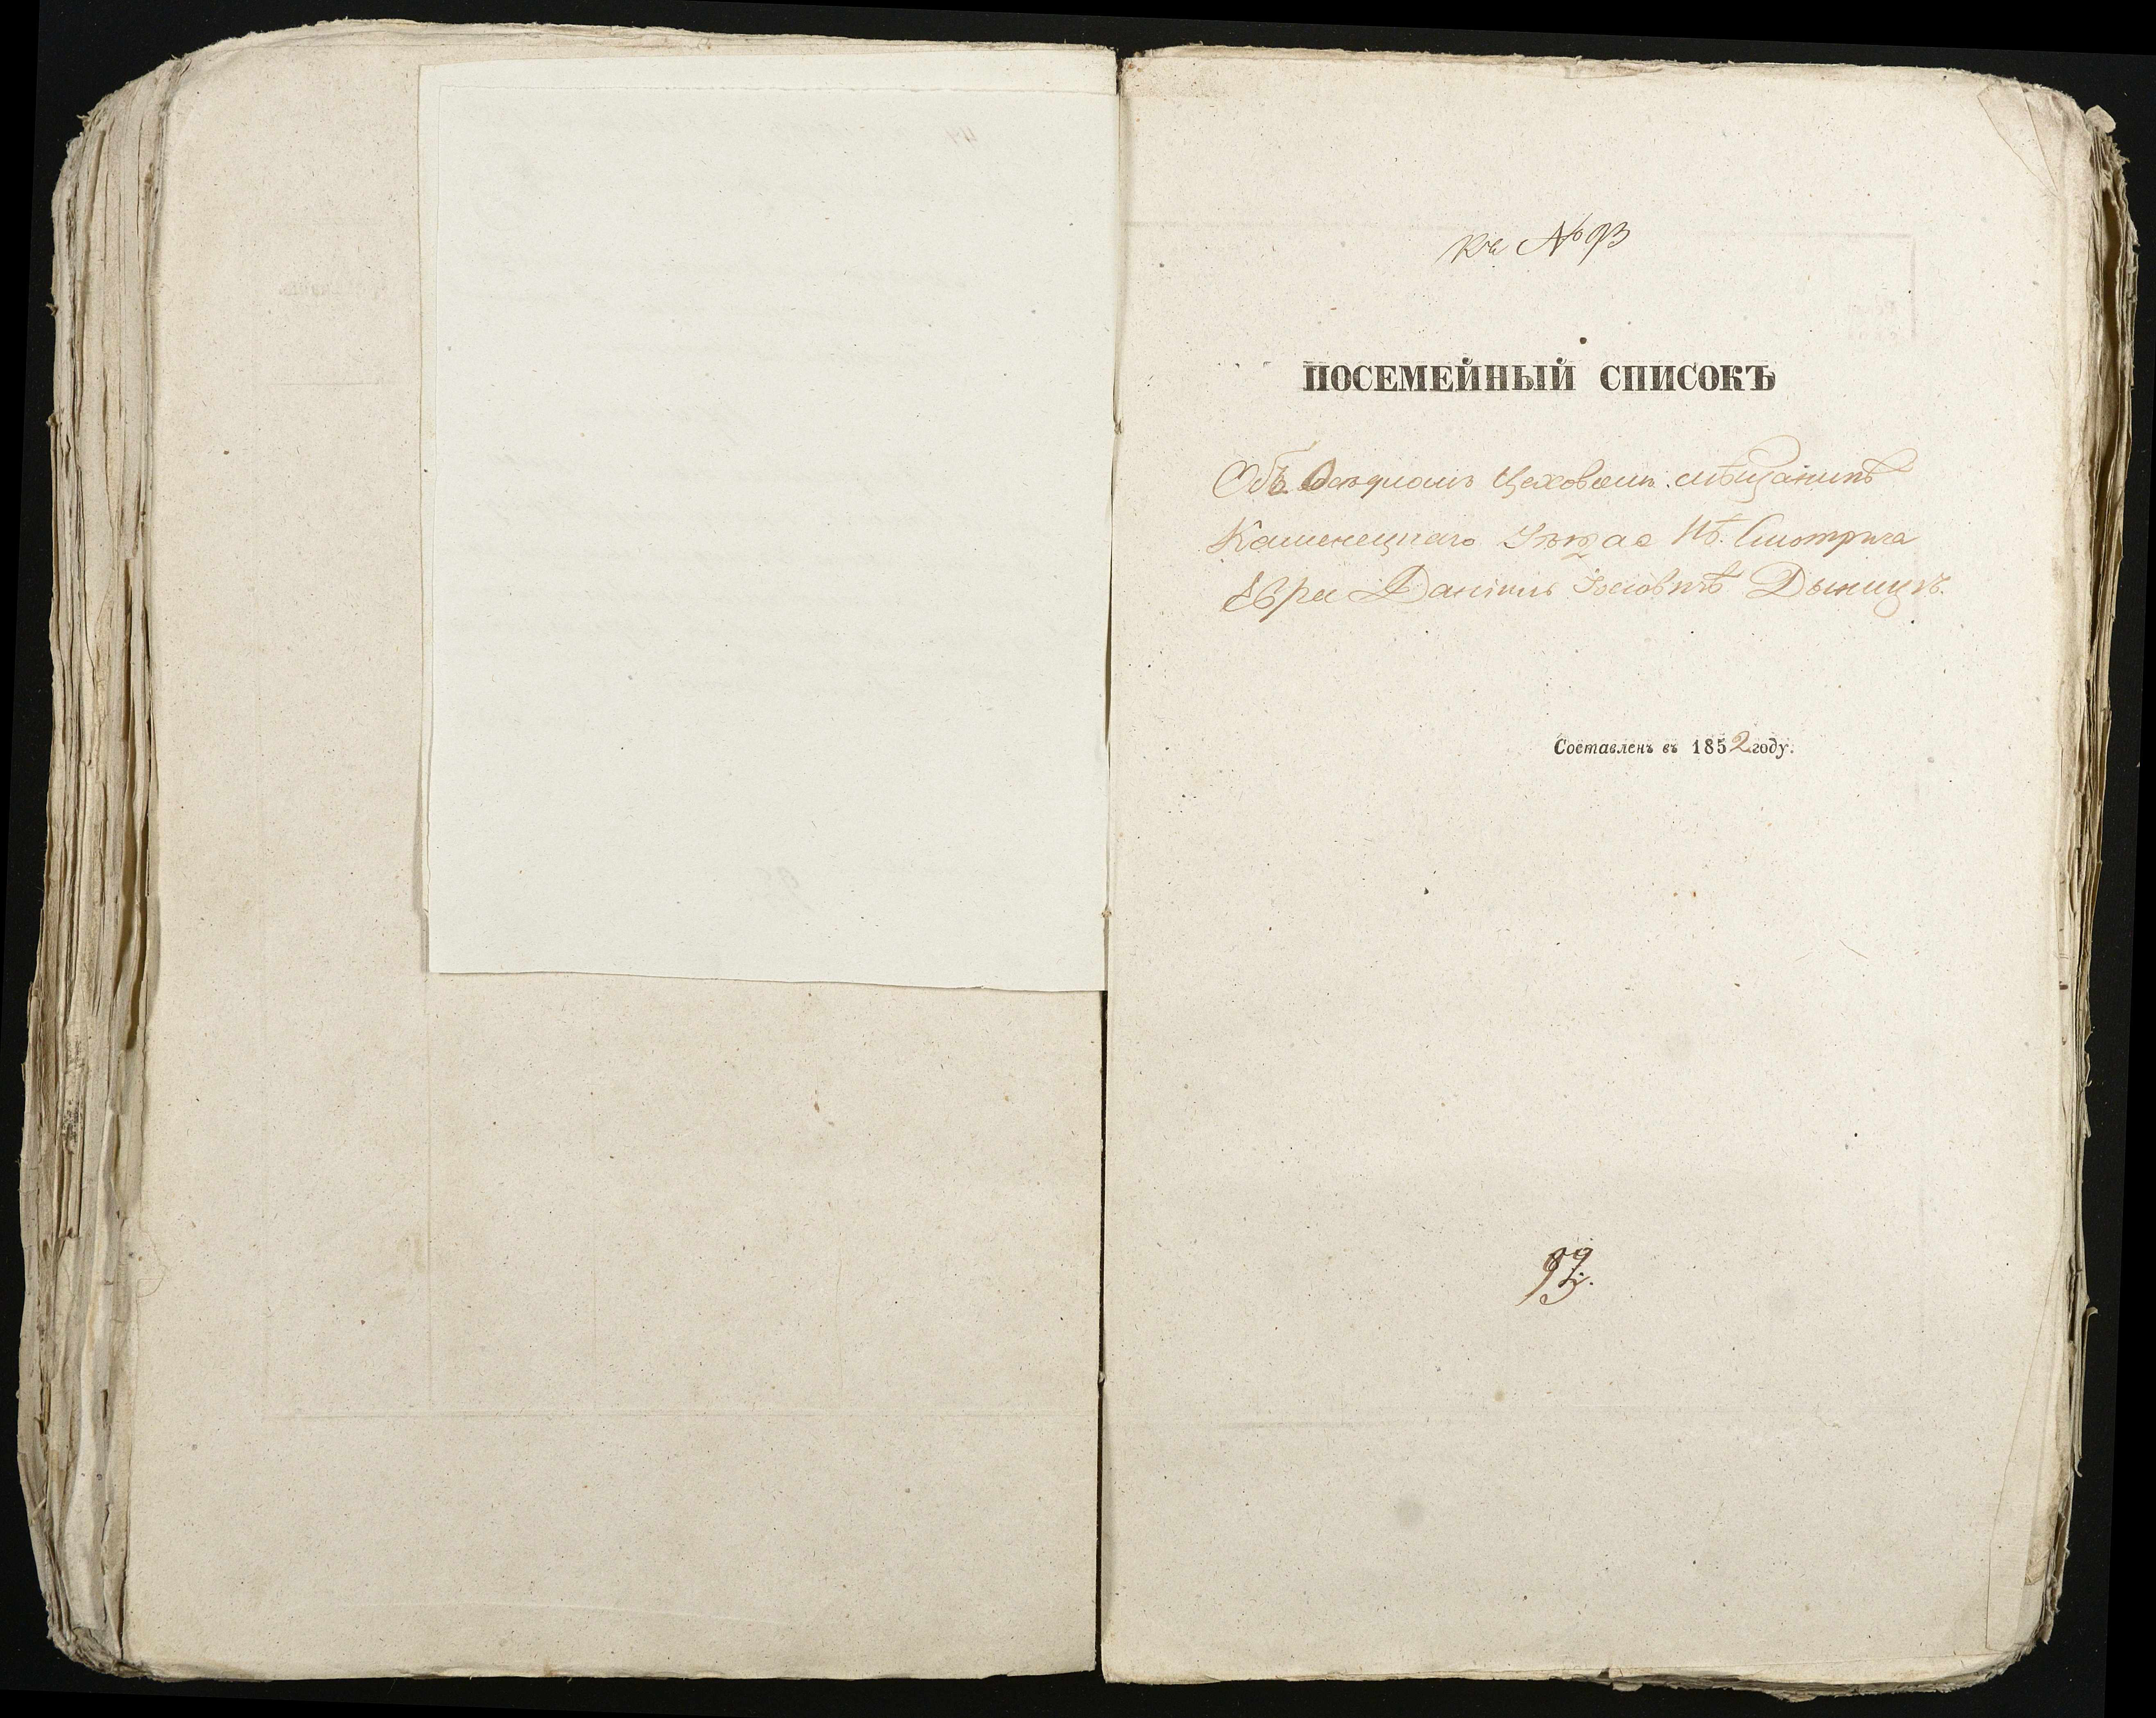 Къ № 93
ПОСЕМЕЙНЫЙ СПИСОКЪ
Объ осѣдломъ Цеховомъ мѣщанинѣ
Каменецкаго Уѣзда М. Смотрича
Евре Даніилѣ Іосіовичѣ Дыницъ.
Составленъ въ 1852 году.
93.